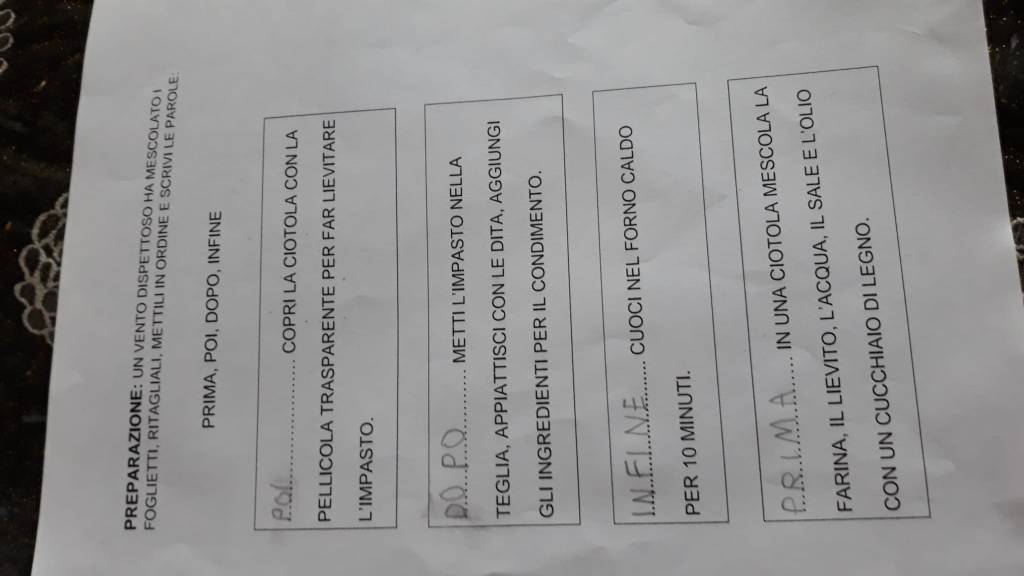 PREPARAZIONE: UN VENTO DISPETTOSO HA MESCOLATO I
FOGLIETTI, RITAGLIALI, METTILI IN ORDINE E SCRIVI LE PAROLE:
PRIMA, POI, DOPO, INFINE
POI.................... COPRI LA CIOTOLA CON LA
PELLICOLA TRASPARENTE PER FAR LIEVITARE
L'IMPASTO.
DOPO............ METTI L'IMPASTO NELLA
TEGLIA, APPIATTISCI CON LE DITA, AGGIUNGI
GLI INGREDIENTI PER IL CONDIMENTO.
INFINE......... CUOCI NEL FORNO CALDO
PER 10 MINUTI.
PRIMA...... IN UNA CIOTOLA MESCOLA LA
FARINA, IL LIEVITO, L'ACQUA, IL SALE E L'OLIO
CON UN CUCCHIAIO DI LEGNO.